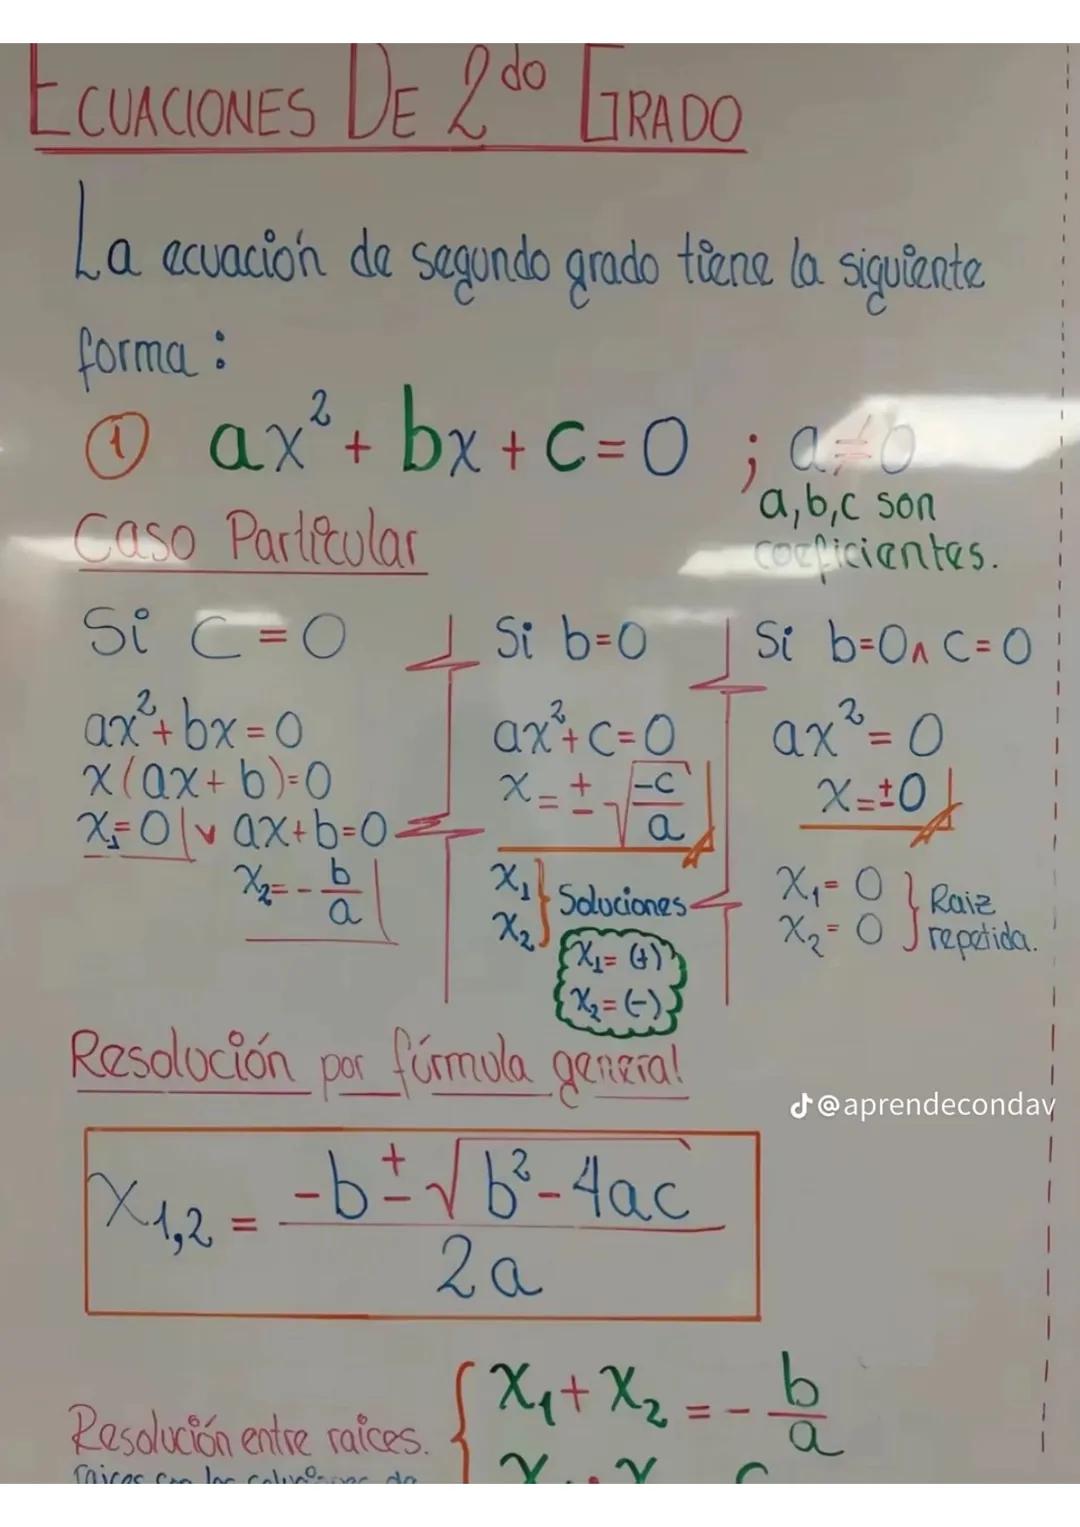 ECUACIONES DE 2do GRADO
La ecuación de segundo grado tiene la siguiente
forma :
① ax² + bx + c = 0 ; a ≠ 0
a, b, c son
coeficientes.
Caso Particular
Si c = 0
ax² + bx = 0
x(ax + b) = 0
x₁ = 0 ∨ ax + b = 0
x₂ = - b/a
Si b = 0
ax² + c = 0
x = ± √(-c/a)
x₁
x₂ } Soluciones
x₁ = (+)
x₂ = (-)
Si b = 0 ∧ c = 0
ax² = 0
x = ±0
x₁ = 0
x₂ = 0 } Raiz
repetida.
Resolución por fórmula general
@aprendecondav
x₁,₂ = (-b ± √(b² - 4ac)) / 2a
Resolución entre raices. { x₁ + x₂ = - b/a